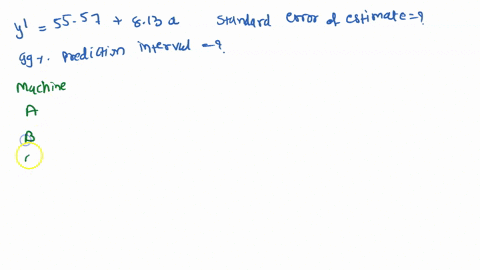 y' = 55.57 + 8.13 a standard error of estimate=?
99%. prediction interval =?
Machine
A
B